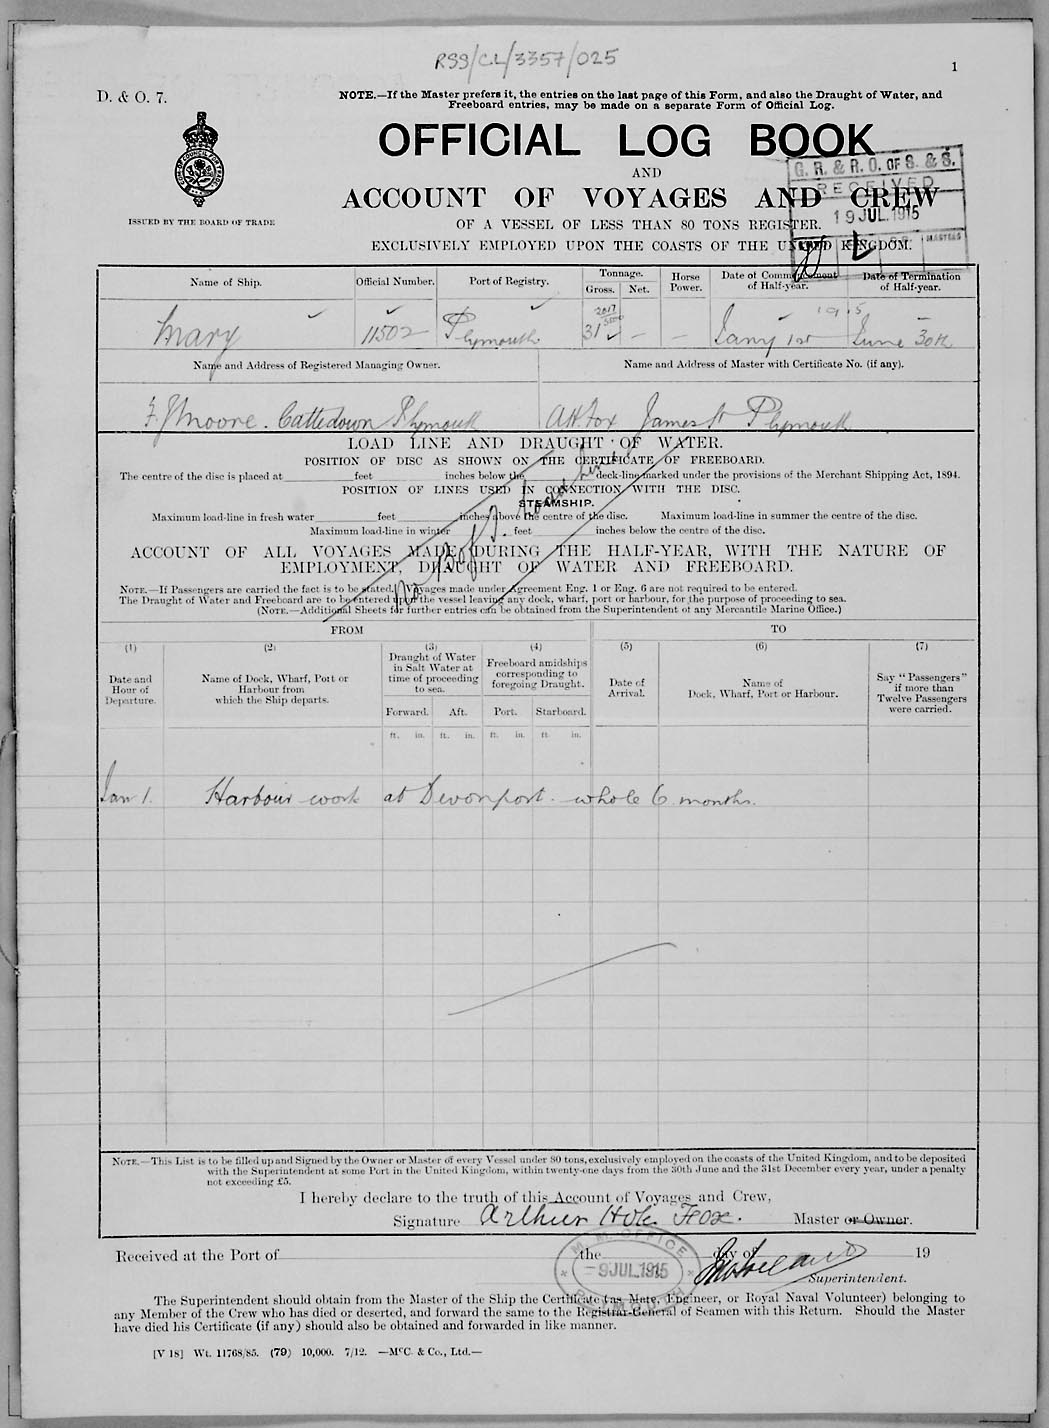 RSS/CL/3357/025
1
D. & O. 7.
NOTE.—If the Master prefers it, the entries on the last page of this Form, and also the Draught of Water, and
Freeboard entries, may be made on a separate Form of Official Log.
OFFICIAL LOG BOOK
AND
ACCOUNT OF VOYAGES AND CREW
OF A VESSEL OF LESS THAN 80 TONS REGISTER.
EXCLUSIVELY EMPLOYED UPON THE COASTS OF THE UNITED KINGDOM.
ISSUED BY THE BOARD OF TRADE
G. R. & R. O. OF S. & S.
RECEIVED
19 JUL. 1915
MASTERS
Name of Ship.
Official Number.
Port of Registry.
Tonnage.
Gross. Net.
Horse
Power.
Date of Commencement
of Half-year.
Date of Termination
of Half-year.
1915
Mary 11502 Plymouth 31 – – Jany 1st June 30th
Name and Address of Registered Managing Owner.
Name and Address of Master with Certificate No. (if any).
F. J Moore. Cattedown Plymouth
A H Fox James St Plymouth
LOAD LINE AND DRAUGHT OF WATER.
POSITION OF DISC AS SHOWN ON THE CERTIFICATE OF FREEBOARD.
The centre of the disc is placed at feet inches below the deck-line marked under the provisions of the Merchant Shipping Act, 1894.
POSITION OF LINES USED IN CONNECTION WITH THE DISC.
STEAMSHIP.
Maximum load-line in fresh water feet inches above the centre of the disc. Maximum load-line in summer the centre of the disc.
Maximum load-line in winter feet inches below the centre of the disc.
ACCOUNT OF ALL VOYAGES MADE DURING THE HALF-YEAR, WITH THE NATURE OF
EMPLOYMENT, DRAUGHT OF WATER AND FREEBOARD.
NOTE.—If Passengers are carried the fact is to be stated. Voyages made under Agreement Eng. 1 or Eng. 6 are not required to be entered.
The Draught of Water and Freeboard are to be entered upon the vessel leaving any dock, wharf, port or harbour, for the purpose of proceeding to sea.
(NOTE.—Additional Sheets for further entries can be obtained from the Superintendent of any Mercantile Marine Office.)
FROM
TO
(1)
Date and
Hour of
Departure.
(2)
Name of Dock, Wharf, Port or
Harbour from
which the Ship departs.
(3)
Draught of Water
in Salt Water at
time of proceeding
to sea.
Forward. Aft.
(4)
Freeboard amidships
corresponding to
foregoing Draught.
Port. Starboard.
(5)
Date of
Arrival.
(6)
Name of
Dock, Wharf, Port or Harbour.
(7)
Say "Passengers"
if more than
Twelve Passengers
were carried.
ft. in. ft. in. ft. in. ft. in.
Jan 1. Harbour work at Devonport. whole 6 months.
NOTE.—This List is to be filled up and Signed by the Owner or Master of every Vessel under 80 tons, exclusively employed on the coasts of the United Kingdom, and to be deposited
with the Superintendent at some Port in the United Kingdom, within twenty-one days from the 30th June and the 31st December every year, under a penalty
not exceeding £5.
I hereby declare to the truth of this Account of Voyages and Crew,
Signature Arthur Fox. Master or Owner.
Received at the Port of the day of 19
M. M. OFFICE
– 9 JUL. 1915
PLYMOUTH
Superintendent.
The Superintendent should obtain from the Master of the Ship the Certificate (as Mate, Engineer, or Royal Naval Volunteer) belonging to
any Member of the Crew who has died or deserted, and forward the same to the Registrar-General of Seamen with this Return. Should the Master
have died his Certificate (if any) should also be obtained and forwarded in like manner.
[V 18] Wt. 11768/85. (79) 10,000. 7/12. —McC. & Co., Ltd.—